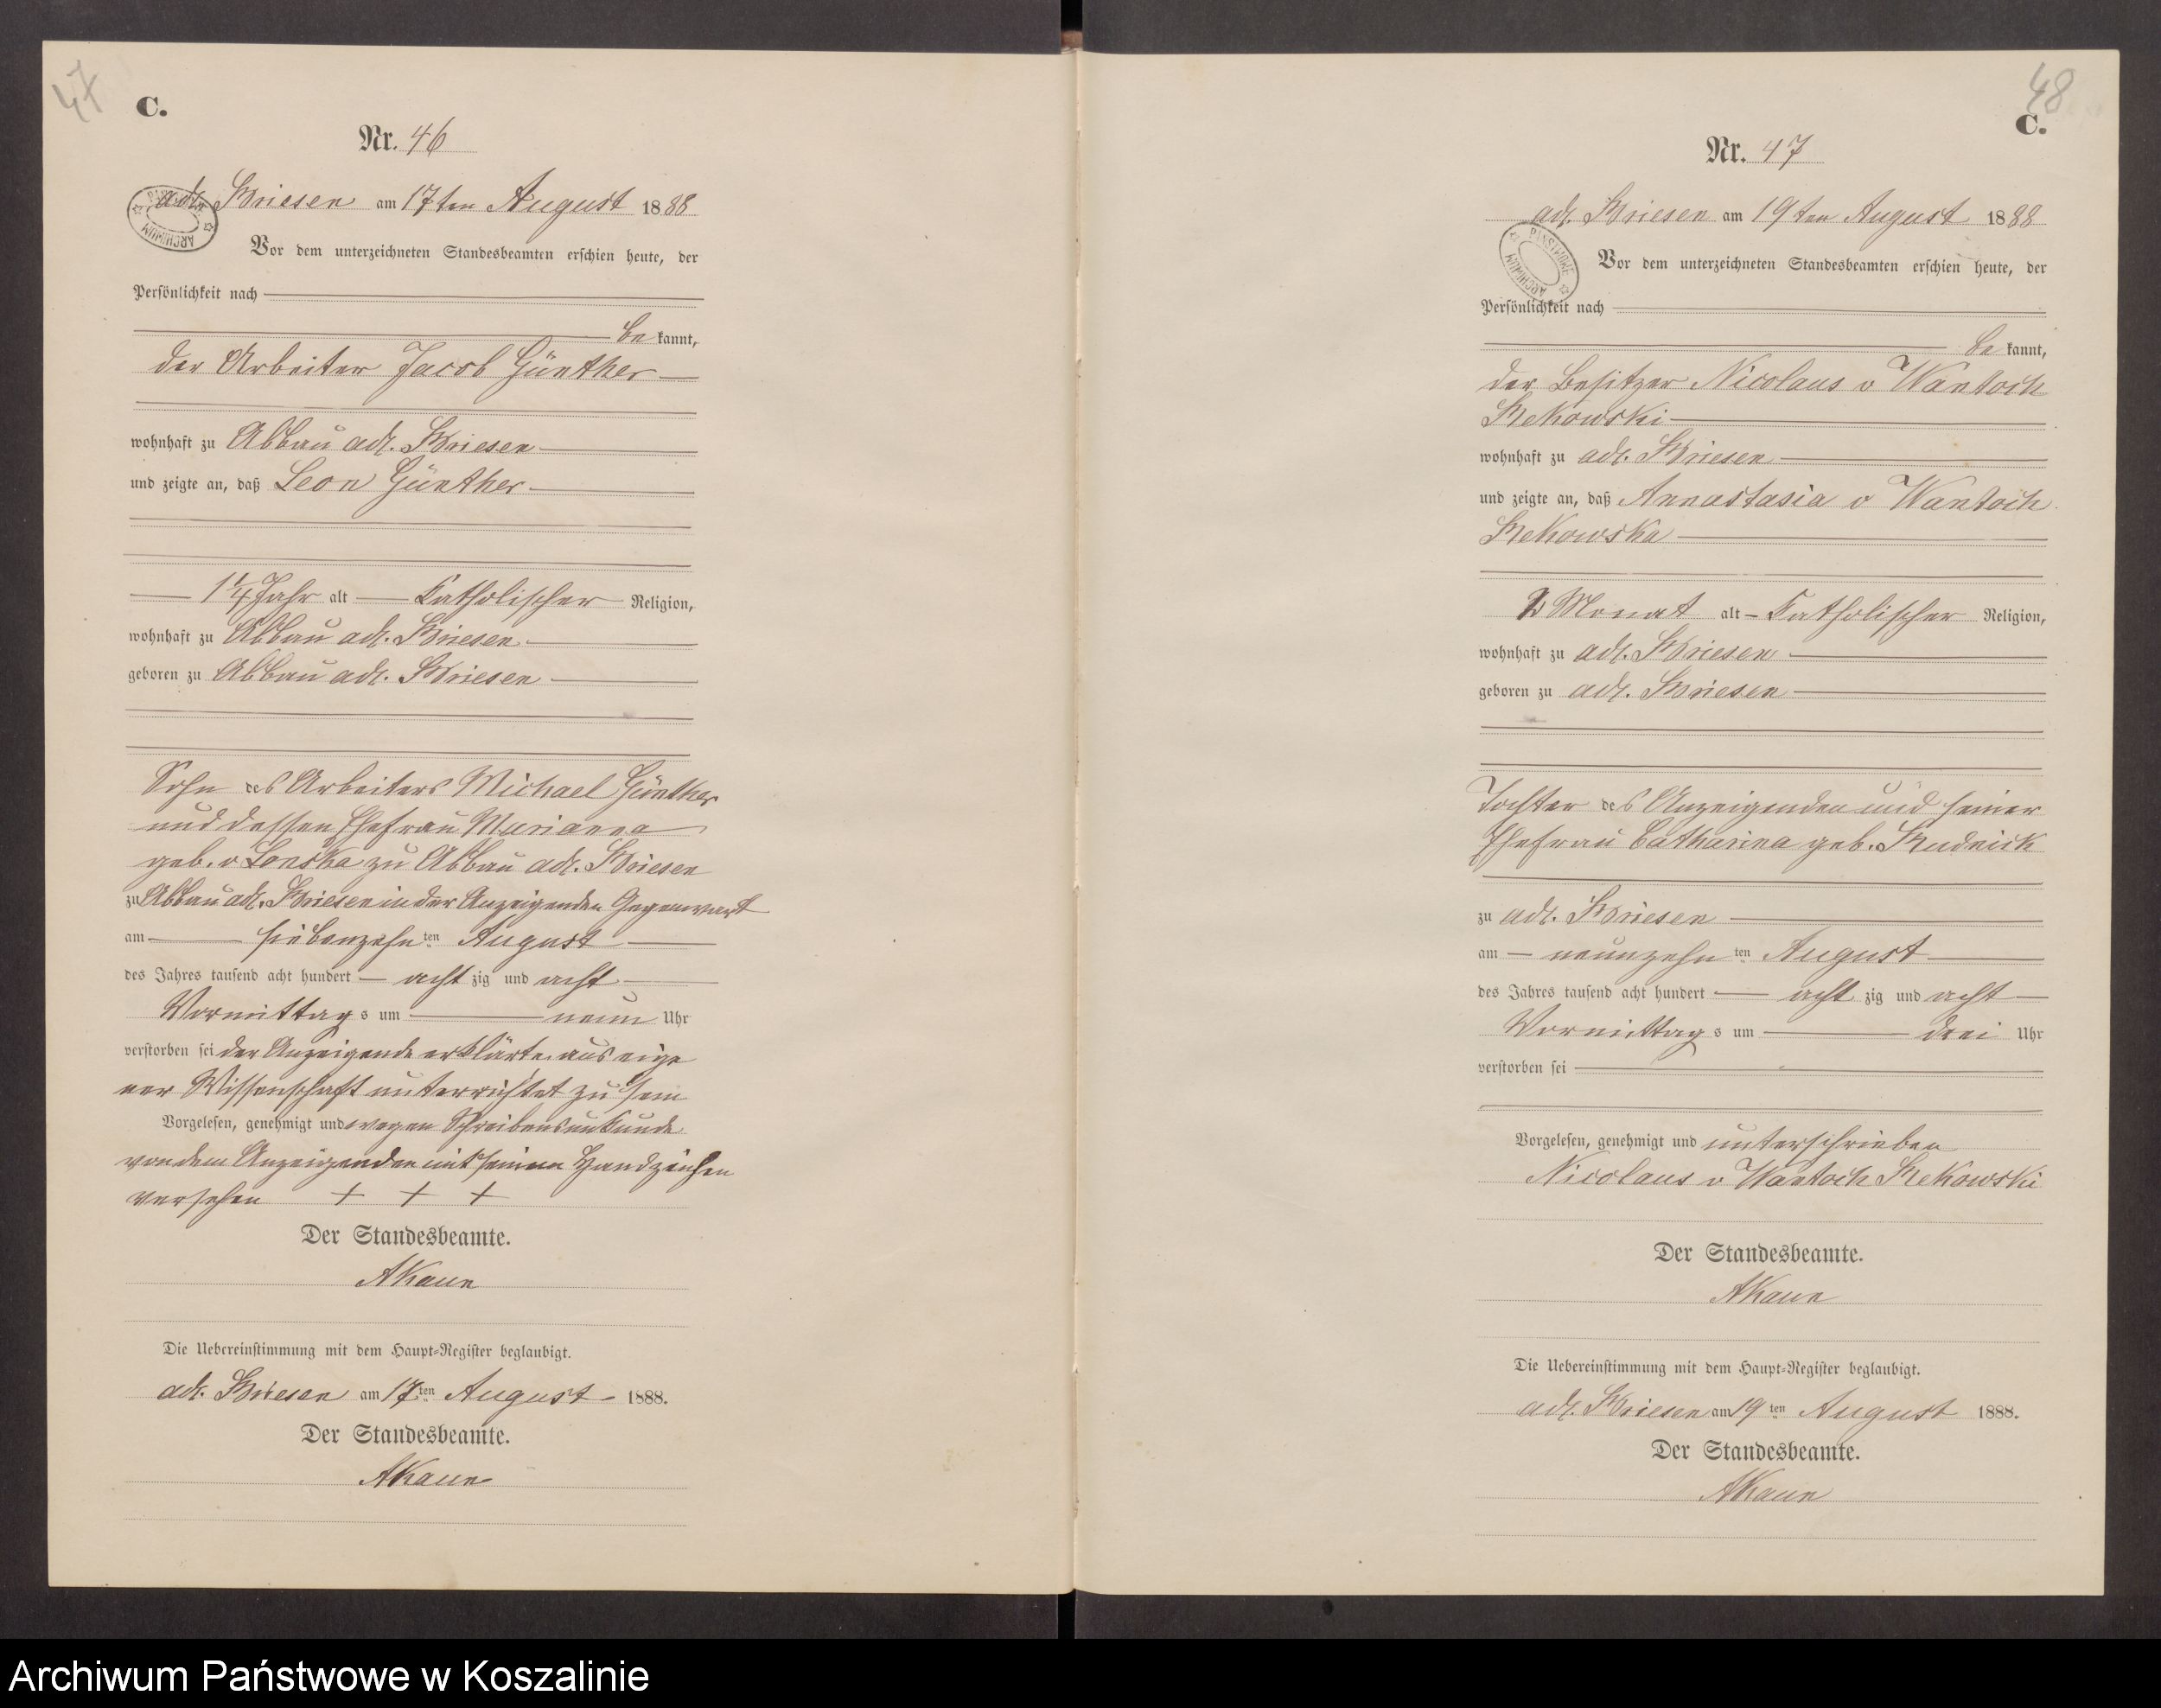 47
C.
Nr. 46
adl. Briesen am 17ten August 1888
Vor dem unterzeichneten Standesbeamten erschien heute, der
Persönlichkeit nach
be kannt,
der Arbeiter Jacob Günther
wohnhaft zu Abbau adl. Briesen
und zeigte an, daß Leon Günther
1 1/4 Jahr alt katholischer Religion,
wohnhaft zu Abbau adl. Briesen
geboren zu Abbau adl. Briesen
Sohn des Arbeiters Michael Günther
und dessen Ehefrau Marianna
geb. v Lonska zu Abbau adl. Briesen
zu Abbau adl. Briesen in der Anzeigenden Gegenwart
am siebenzehn ten August
des Jahres tausend acht hundert acht zig und acht
Vormittag s um neun Uhr
verstorben sei der Anzeigende erklärte aus eige
ner Wissenschaft unterrichtet zu sein
Vorgelesen, genehmigt und wegen Schreibensunkunde
von dem Anzeigenden mit seinem Handzeichen
versehen + + +
Der Standesbeamte.
AKaun
Die Uebereinstimmung mit dem Haupt-Register beglaubigt.
adl. Briesen am 17 ten August 1888.
Der Standesbeamte.
AKaun
48
C.
Nr. 47
adl. Briesen am 19ten August 1888
PAŃSTWOWE ARCHIWUM
Vor dem unterzeichneten Standesbeamten erschien heute, der
Persönlichkeit nach
be kannt,
der Besitzer Nicolaus v Wantoch
Rekowski
wohnhaft zu adl. Briesen
und zeigte an, daß Annastasia v Wantoch
Rekowska
Monat alt katholischer Religion,
wohnhaft zu adl. Briesen
geboren zu adl. Briesen
Tochter des Anzeigenden und seiner
Ehefrau Catharina geb. Rudnick
zu adl. Briesen
am neunzehn ten August
des Jahres tausend acht hundert acht zig und acht
Vormittag s um drei Uhr
verstorben sei
Vorgelesen, genehmigt und unterschrieben
Nicolaus v Wantoch Rekowski
Der Standesbeamte.
AKaun
Die Uebereinstimmung mit dem Haupt-Register beglaubigt.
adl. Briesen am 19 ten August 1888.
Der Standesbeamte.
AKaun
Archiwum Państwowe w Koszalinie